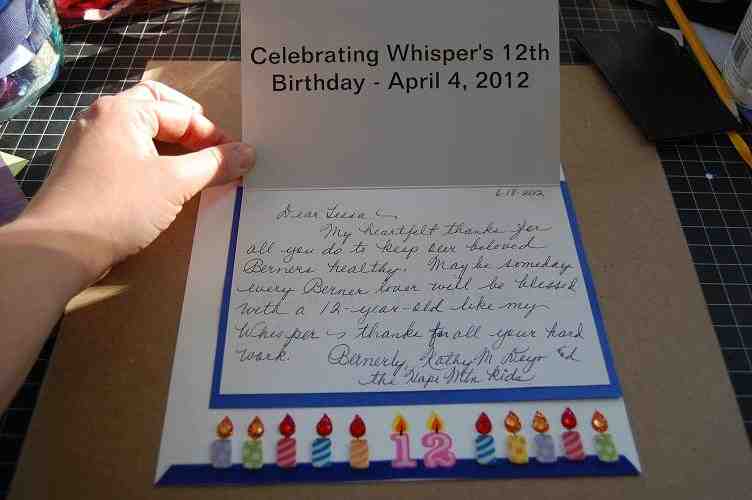 Celebrating Whisper's 12th
Birthday - April 4, 2012
6-18-2012
Dear Tessa ~
My heartfelt thanks for
all you do to keep our beloved
Berners healthy. Maybe someday
every Berner lover will be blessed
with a 12-year-old like my
Whisper ~ thanks for all your hard
work. Bernerly, Kathy M
the Mtn kids
12